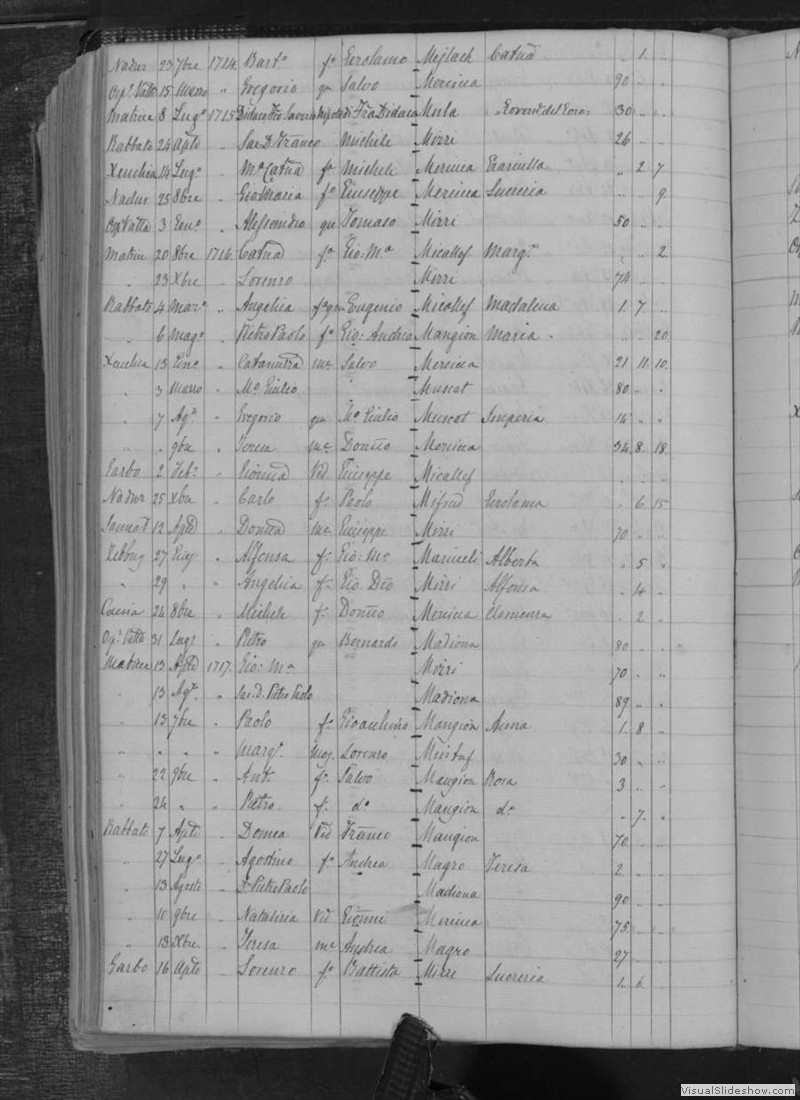 Nadur 23 7bre 1714 Bart.o f.o Gerolamo Mejlach Catna " 1 "
Osp.e Vitto 15 Marzo " Gregorio qm Salvo Mercieca 90 " "
Matrice 8 Lug.o 1715 Nipote di Fra Didaco Mula 30 " "
Rabbato 24 Aple " Sac. D. Franco Michele Mizzi 26 " "
Xeuchia 14 Lug.o " M.a Catna f.a Michele Mercieca Graziulla " 2 7
Nadur 25 8bre " Gio Maria f.o Giuseppe Mercieca Lucrezia " " 9
3 Gen.o " Alessandro qm Tomaso Mizzi 50 " "
Matrice 20 8bre 1716 Catna f.a Gio: M.a Micallef Marg.a " " 2
" 23 Xbre " Lorenzo Mizzi 74 " "
Rabbato 4 Mar.o " Angelica f.a qm Eugenio Micallef Madalena 1 7 "
" 6 Mag.o " Pietro Paolo f.o Gio: Andrea Mangion Maria " " 20
Xeuchia 13 Gen.o " Catarina m.e Salvo Mercieca 21 11 10
" 3 Marzo " M.o Giulio Muscat 80 " "
" 7 Ag.o " Gregorio qm M.o Giulio Muscat Imperia 14 " "
" " 9bre " Teresa m.e Dom.co Mercieca 34 8 18
Garbo 2 Feb.o " Gionna Ved Giuseppe Micallef " " "
Nadur 25 Xbre " Carlo f.o Paolo Mifsud Gerolama " 6 15
Sannat 12 Aple " Domca m.e Giuseppe Mizzi 70 " "
Zebbug 27 Giug " Alfonsa f.a Gio: M.a Alberta " 5 "
" 29 " " Angelica f.a Gio. Dco Mizzi Alfonsa " 4 "
Caccia 24 8bre " Michele f.o Dom.co Mercieca Clemenza " 2 "
31 Lug.o " Pietro qm Bernardo Madiona 80 " "
Matrice 13 Aple 1717 Gio: M.a Mizzi 70 " "
" 13 Ag.o " Sac. D. Pietro Paolo Madiona 89 " "
" 13 7bre " Paolo f.o Gioacchino Mangion Anna 1 8 "
" " " " Marg.a mog. Lorenzo 30 " "
" 22 9bre " Ant.o f.o Salvo Mangion Rosa 3 " "
" 24 " " Pietro f.o d.o Mangion d.a " 7 "
Rabbato 7 Aple " Domca Ved Franco Mangion 70 " "
" 27 Lug.o " Agostino f.o Andrea Magro Teresa 2 " "
" 13 Agosto " D. Pietro Paolo Madiona 90 " "
" 10 9bre " Natalizia Ved Gionni Mercieca 75 " "
" 13 Xbre " Teresa m.e Andrea Magro 27 " "
Garbo 16 Aple " Lorenzo f.o Battista Mizzi Lucrezia 1 6 "
VisualSlideshow.com